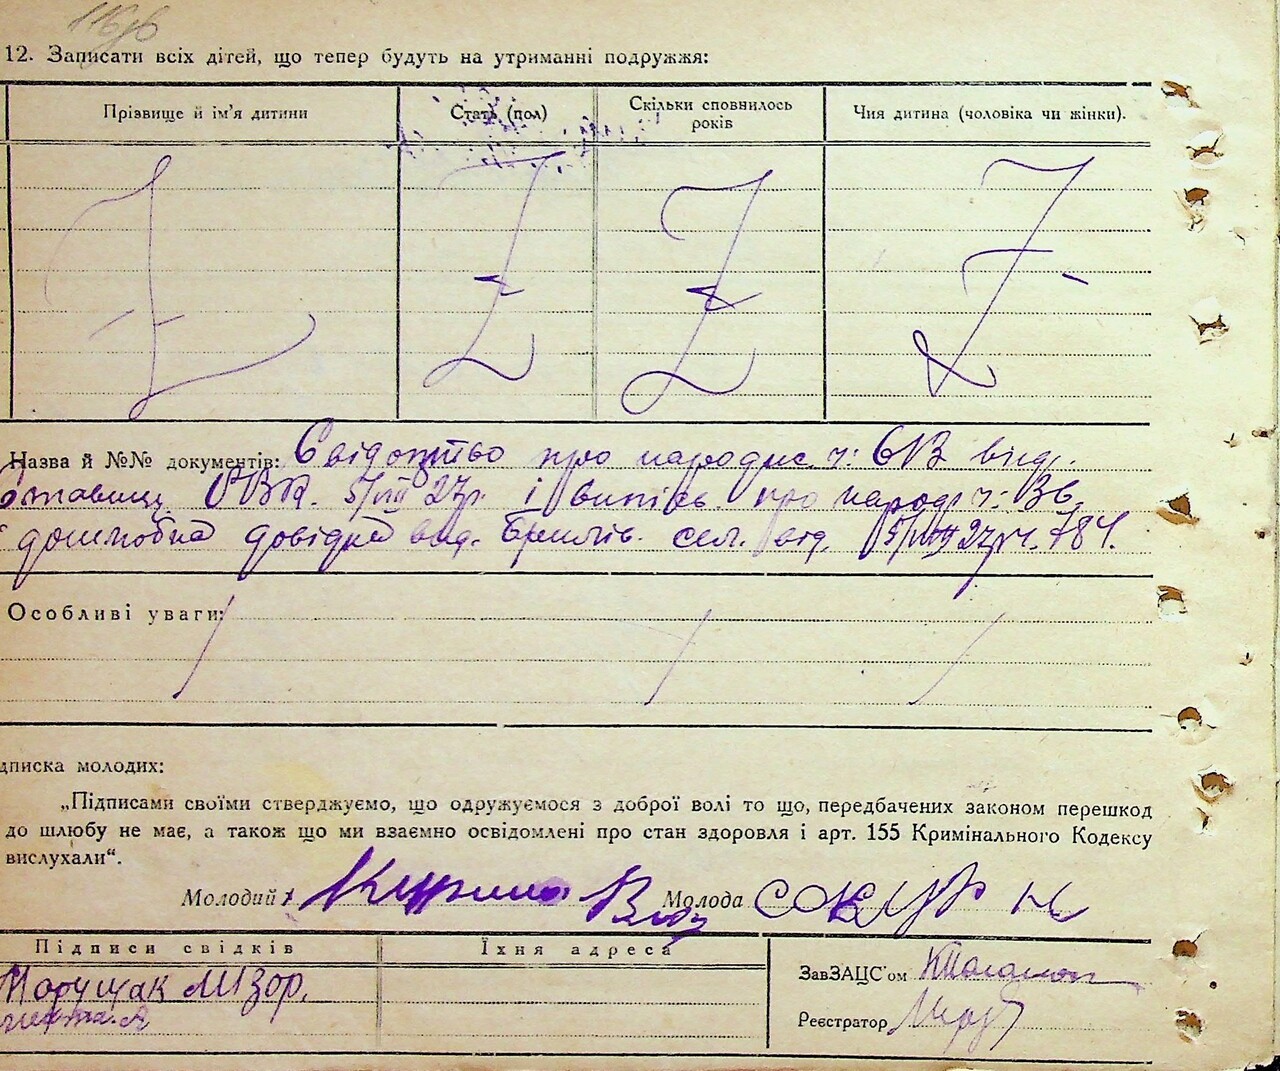 12. Записати всіх дітей, що тепер будуть на утриманні подружжя:
Прізвище й ім'я дитини
Стать (пол)
Скільки сповнилось
років
Чия дитина (чоловіка чи жінки).
Назва й №№ документів: Свідоцтво про народж. ч: 613 вид.
РВК. 5/VIII 27р. і випись про народ ч: 36,
довідка вид. сел. від 5/VIII 27р. ч. 784.
Особливі уваги:
дписка молодих:
„Підписами своїми стверджуємо, що одружуємося з доброї волі то що, передбачених законом перешкод
до шлюбу не має, а також що ми взаємно освідомлені про стан здоровля і арт. 155 Кримінального Кодексу
вислухали“.
Молодий Молода СОКУР
Підписи свідків
Їхня адреса
Марущак
ЗавЗАЦС'ом
Реєстратор